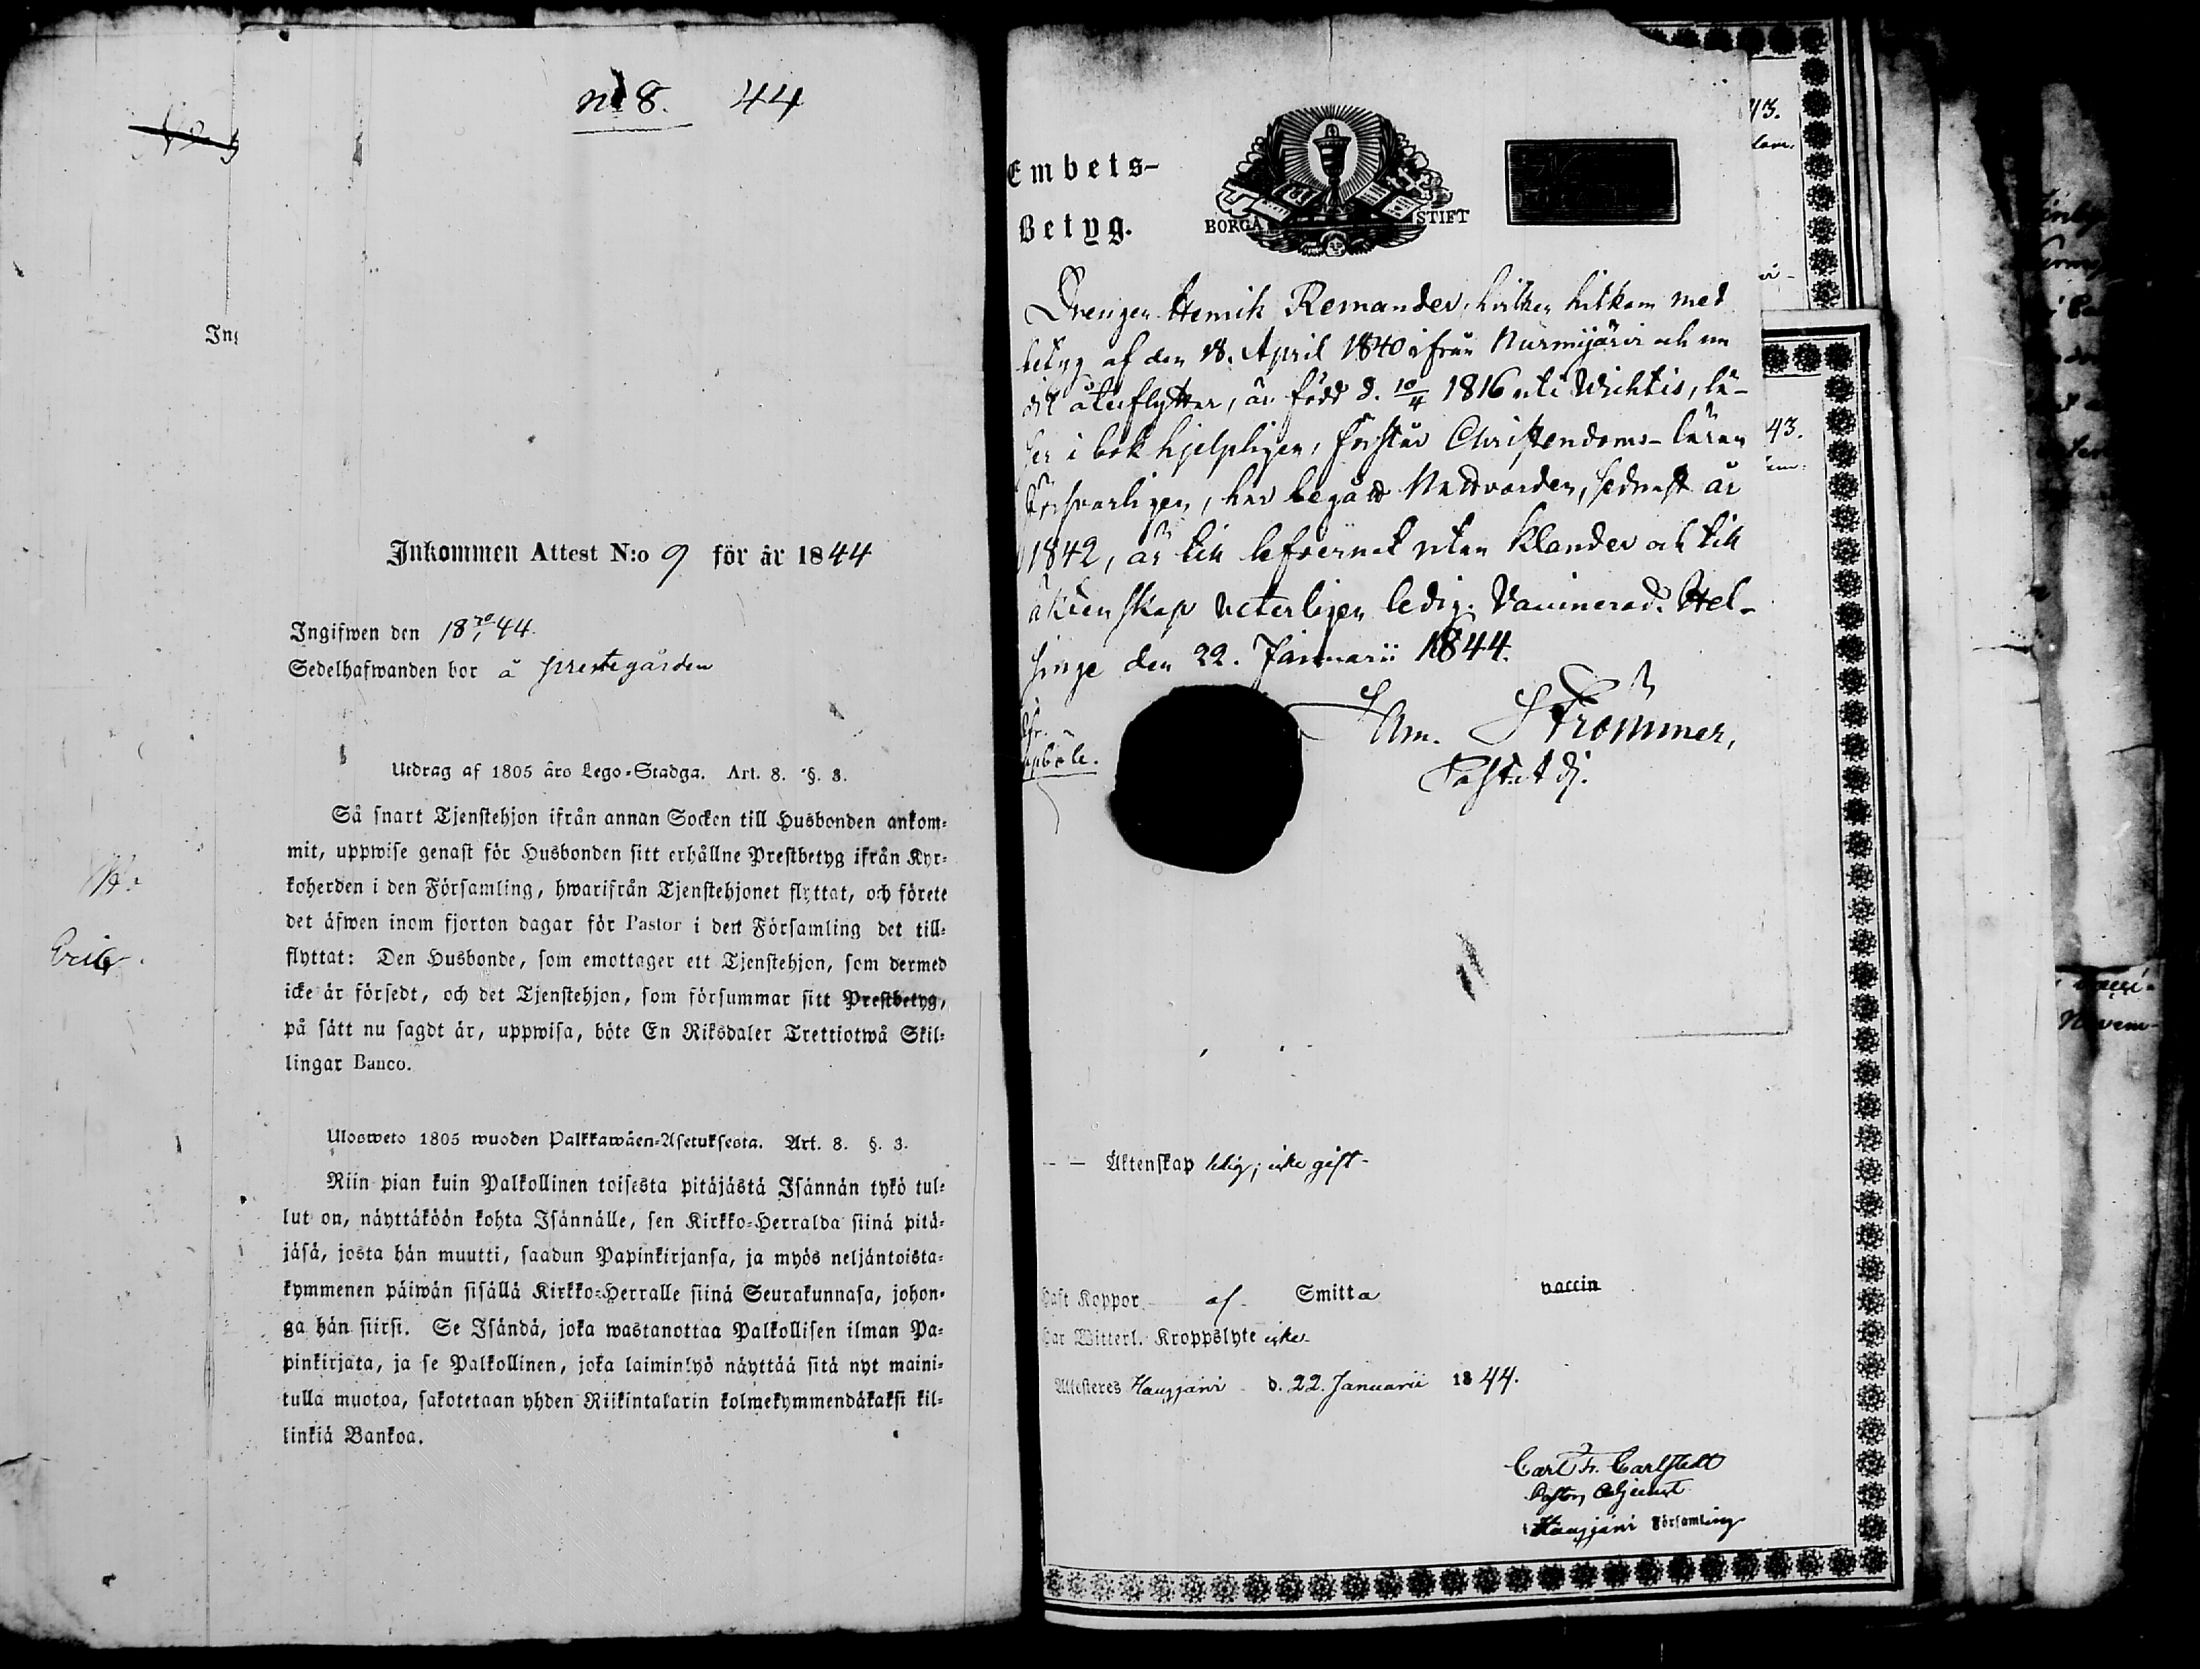 no 8. 44
Ing
Inkommen Attest N:o 9 för år 1844
Ingifwen den 18 30/1 44.
Sedelhafwanden bor å prestegården
Utdrag af 1805 års Lego-Stadga. Art. 8. §. 3.
Så snart Tjenstehjon ifrån annan Socken till Husbonden ankom-
mit, uppwise genast för Husbonden sitt erhållne Prestbetyg ifrån Kyr-
koherden i den Församling, hwarifrån Tjenstehjonet flyttat, och förete
det äfwen inom fjorton dagar för Pastor i den Församling det till-
flyttat: Den Husbonde, som emottager ett Tjenstehjon, som dermed
icke är försedt, och det Tjenstehjon, som försummar sitt Prestbetyg,
på sätt nu sagdt är, uppwisa, böte En Riksdaler Trettiotwå Skil-
lingar Banco.
Ulosweto 1805 wuoden Palkkawäen-Asetuksesta. Art. 8. §. 3.
Niin pian kuin Palkollinen toisesta pitäjästä Isännän tykö tul-
lut on, näyttäköön kohta Isännälle, sen Kirkko-Herralda siinä pitä-
jäsä, josta hän muutti, saadun Papinkirjansa, ja myös neljäntoista-
kymmenen päiwän sisällä Kirkko-Herralle siinä Seurakunnasa, johon-
ga hän siirsi. Se Isändä, joka wastanottaa Palkollisen ilman Pa-
pinkirjata, ja se Palkollinen, joka laiminlyö näyttää sitä nyt maini-
tulla muotoa, sakotetaan yhden Riikintalarin kolmekymmendäkaksi kil-
linkiä Bankoa.
Embets-
Betyg.
BORGÅ STIFT
Drengen Henrik Remander, hvilken hitkom med
betyg af den 18. April 1840 ifrån Nurmijärvi och nu
dit återflyttar, är född d. 10/4 1816 uti Wichtis, lä-
ser i bok hjelpligen, förstår Christendoms-läran
försvarligen, har begått Nattvarden, sednast år
1842, är till lefvernet utan klander och till
äktenskap veterligen ledig. Vaccinerad. Hel-
singe den 22. Januarii 1844.
Am. Strömmer,
Past. adj.
43.
43.
Äktenskap ledig; icke gift-
Haft Koppor af Smitta vaccin
Har Witterl. Kroppslyte icke
Attesteras Hausjärvi d. 22. Januarii 1844.
Carl Fr. Carlstedt
Pastors Adjunct
i Hausjärvi Församling
Novem-